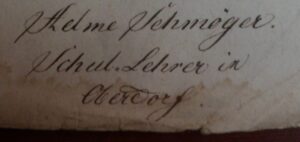 Helme Schmøger.
Schul. Lehrer in
Oberdorf.